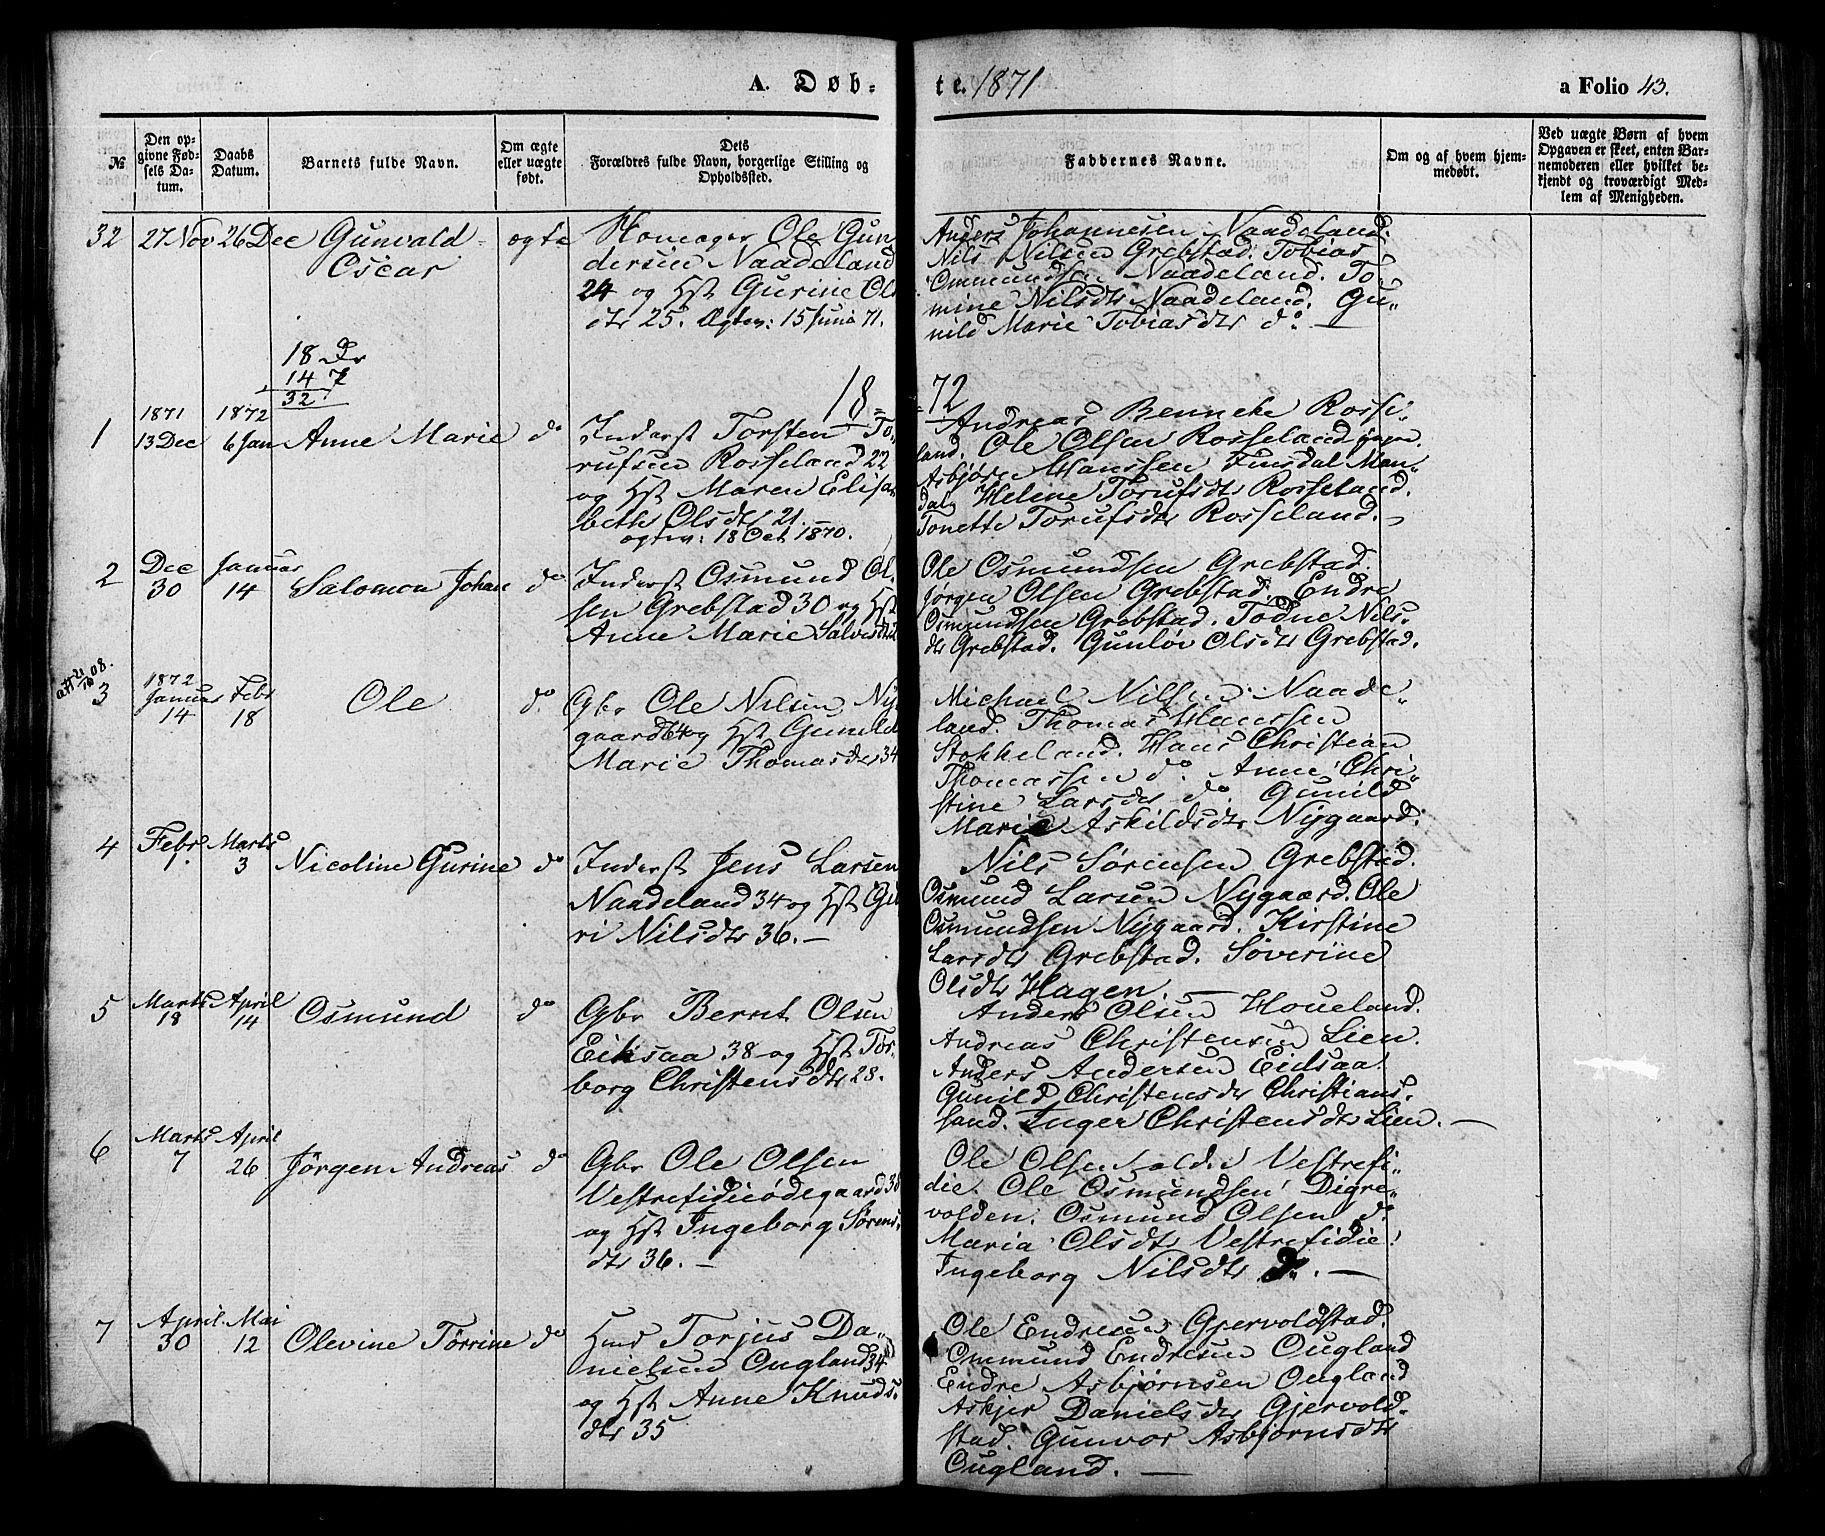 A. Døb-
te. 1871
a Folio 43.
№
Den op-
givne Fød-
sels Da-
tum.
Daabs
Datum.
Barnets fulde Navn.
Om ægte
eller uægte
født.
Dets
Forældres fulde Navn, borgerlige Stilling og
Opholdssted.
Faddernes Navne.
Om og af hvem hjem-
medøbt.
Ved uægte Børn af hvem
Opgaven er skeet, enten Bar-
nemoderen eller hvilket be-
kjendt og troværdigt Med-
lem af Menigheden.
32
27 Nov
26 Dec
Gunvald
Oscar
ægte
Ole Gun
dersen Naadeland
24 og Hst Gurine Ols
dtr 25. Ægtev: 15 Juni 71.
Anders Johannesen Naadeland.
Nils Nilsen Grebstad. Tobias
Ommundsen Naadeland. To
mine Nilsdtr Naadeland. Gu-
nild Marie Tobiasdtr do. —
18 Dr
14 P
32
18=
=72
1
1871
13 Dec
1872
6 Jan
Anne Marie
do
Inderst Torsten To-
rufsen Rosseland 22
og Hst Maren Elisa
beth Olsdtr 21.
ægtev: 18 Oct 1870.
Andreas Benneche Rosse-
land. Ole Olsen Rosseland yngre.
Asbjørn Hanssen Finsdal Man-
dal. Helene Torufsdtr Rosseland.
Tonette Torufsdtr Rosseland. —
2
Dec
30
Januar
14
Salomon Johan
do
Inderst Osmund Ol-
sen Grebstad 30 og Hst
Anne Marie Salvesdtr
Ole Osmundsen Grebstad.
Jørgen Olsen Grebstad. Endre
Osmundsen Grebstad. Todne Nils-
dtr Grebstad. Gunløv Olsdtr Grebstad.
08.
3
1872
Januar
14
Febr
18
Ole
do.
Gbr Ole Nilsen Ny
gaard 64 og Hst Gunild
Marie Thomasdtr 34
Michael Nilsen Naade-
land. Thomas Hanssen
Stokkeland. Hans Christian
Thomassen do. Anne Chri-
stine Larsdtr do. Gunild
Marie Askildsdtr Nygaard.
4
Febr
1.
Marts
3
Nicoline Gurine
do
Inderst Jens Larsen
Naadeland 34 og Hst Gu
ri Nilsdtr 36. —
Nils Sørensen Grebstad.
Osmund Larsen Nygaard. Ole
Osmundsen Nygaard. Kirstine
Larsdtr Grebstad. Søverine
Olsdtr Hagen. —
5
Marts
18
April
14
Osmund
do
Gbr Bernt Olsen
Eidsaa 38 og Hst Tor-
borg Christensdtr 28.
Anders Olsen Houeland.
Andreas Christensen Lien.
Anders Andersen Eidsaa.
Gunild Christensdtr Christians-
sand. Inger Christensdtr Lien. —
6
Marts
7
April
26
Jørgen Andreas
do
Gbr Ole Olsen
Vestrefidjeødegaard 38
og Hst Ingeborg Sørens
dtr 36. —
Ole Olsen Vestrefi-
die. Ole Osmundsen Digre-
volden. Osmund Olsen do
Maria Olsdtr Vestrefidie.
Ingeborg Nilsdtr do. —
7
April
30
Mai
12
Olevine Tørrine
do
Torjus Da-
nielsen Ougland 34
og Hst Anne Knuds-
dtr 35
Ole Endresen Gjervoldstad.
Ommund Endresen Ougland
Endre Asbjørnsen Ougland
Askjer Danielsdtr Gjervold-
stad. Gunvor Asbjørnsdtr
Ougland. —